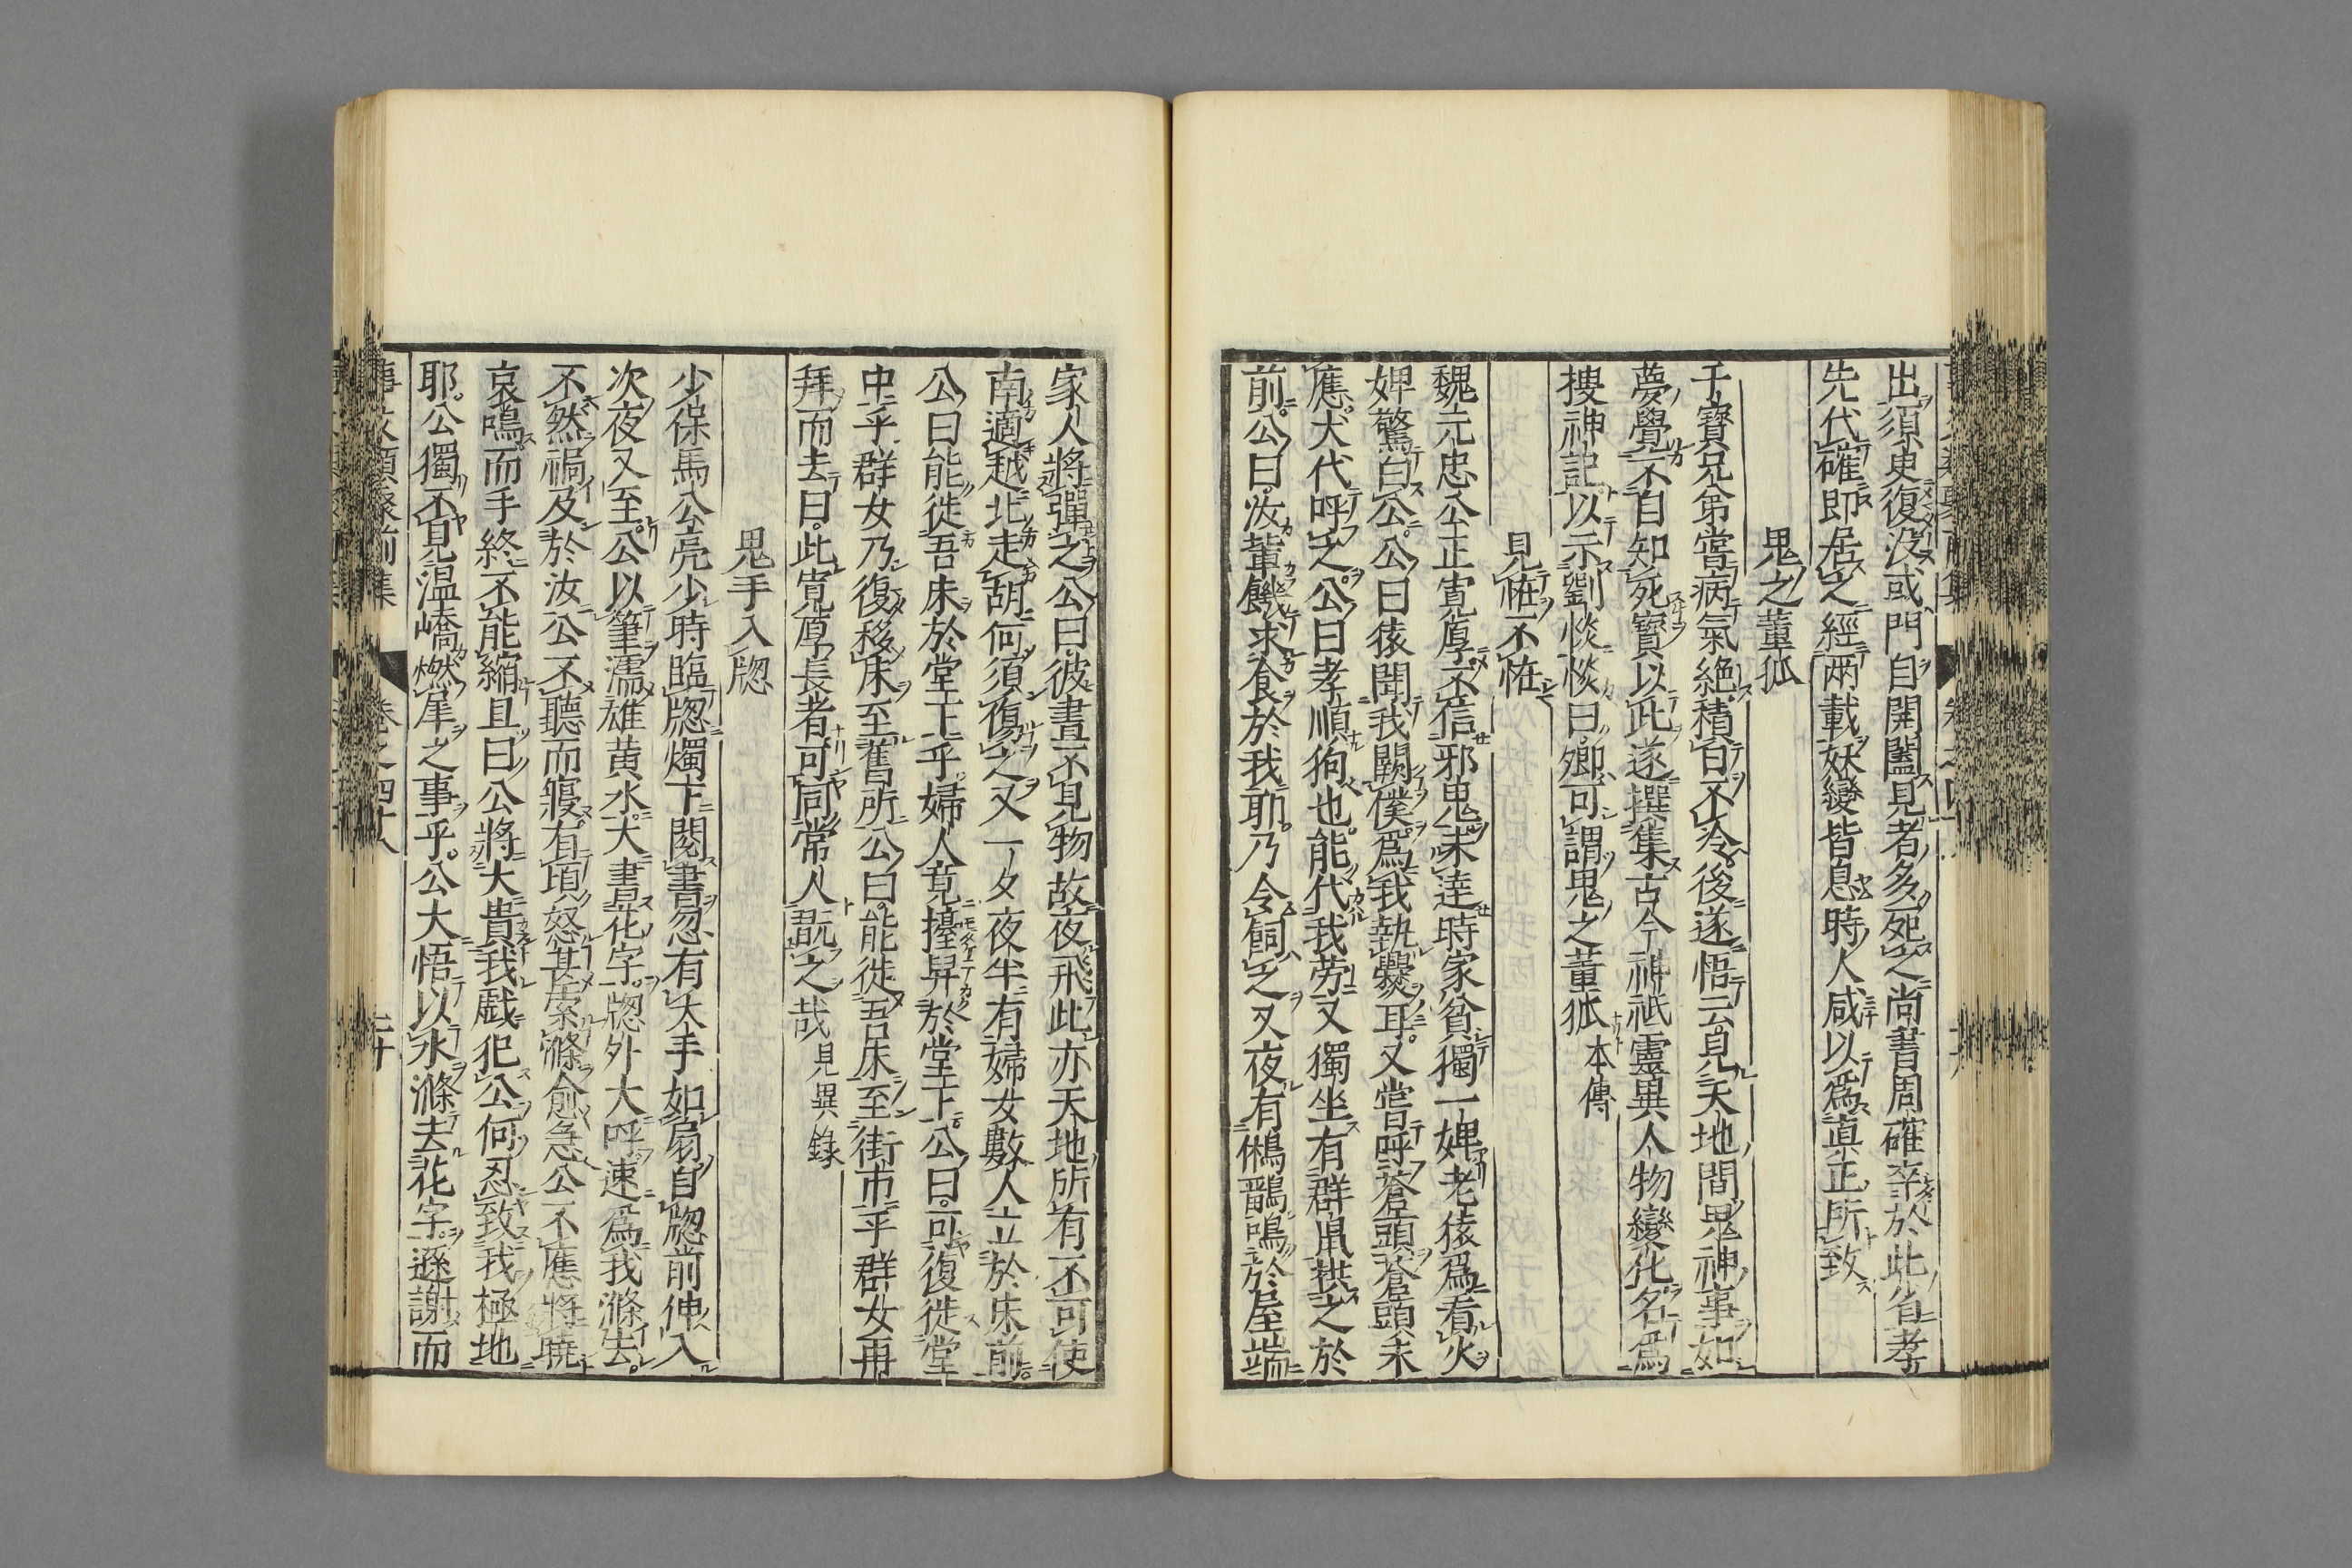 出須叟復没或門自開闔見者多死之尚書周確卒於此省孝
先代確即居之經兩載妖變皆息時人咸以爲真正所致
鬼之董狐
干寶兄弟嘗病氣絶積日不冷後遂悟云見天地間鬼神事如
夢覺不自知死寶以此遂撰集古今神祇靈異人物變化名爲
搜神記以示劉惔惔曰卿可謂鬼之董狐本傳
見恠不恠
魏元忠公正寛厚不信邪鬼未逹時家貧獨一婢老猿爲看火
婢驚白公公曰猿聞我闕僕爲我執爨耳又嘗呼蒼頭蒼頭未
應犬代呼之公曰孝順狗也能代我劳又獨坐有群鼠拱之於
前公曰汝輩饑求食於我耶乃令飼之又夜有鵂鶹鳴於屋端
家人將彈之公曰彼晝不見物故夜飛此亦天地所有不可使
南適越北走胡何須傷之又一夕夜半有婦女數人立於床前
公曰能徙吾床於堂下乎婦人竟擡舁於堂下公曰可復徙堂
中乎群女乃復移床至舊所公曰能徙吾床至街市乎群女再
拜而去曰此寛厚長者可同常人翫之哉見異錄
鬼手入牎
少保馬公亮少時臨牎燭下閲書忽有大手如扇自牎前伸入
次夜又至公以筆濡雄黄水大書花字牎外大呼速爲我滌去
不然禍及於汝公不聽而寢有頃怒甚索滌愈急公不應將曉
哀鳴而手終不能縮且曰公將大貴我戯犯公何忍致我極地
耶公獨不見温嶠燃犀之事乎公大悟以水滌去花字遜謝而